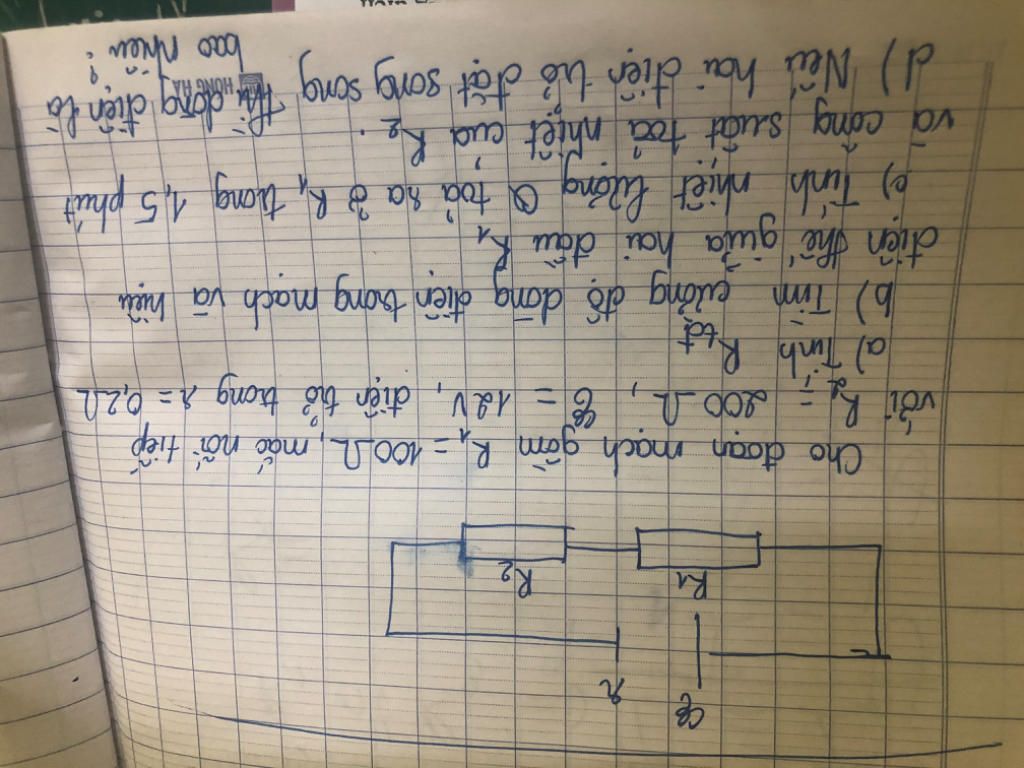 ℰ
r
R1
R2
Cho đoạn mạch gồm R1 = 100Ω, mắc nối tiếp
với R2 = 200Ω, ℰ = 12V, điện trở trong r = 0,2Ω
a) Tính Rtđ
b) Tìm cường độ dòng điện trong mạch và hiệu
điện thế giữa hai đầu R1
c) Tính nhiệt lượng Q toả ra ở R1 trong 1,5 phút
và công suất toả nhiệt của R2.
d) Nếu hai điện trở đặt song song thì dòng điện là
HONG HA
bao nhiêu?